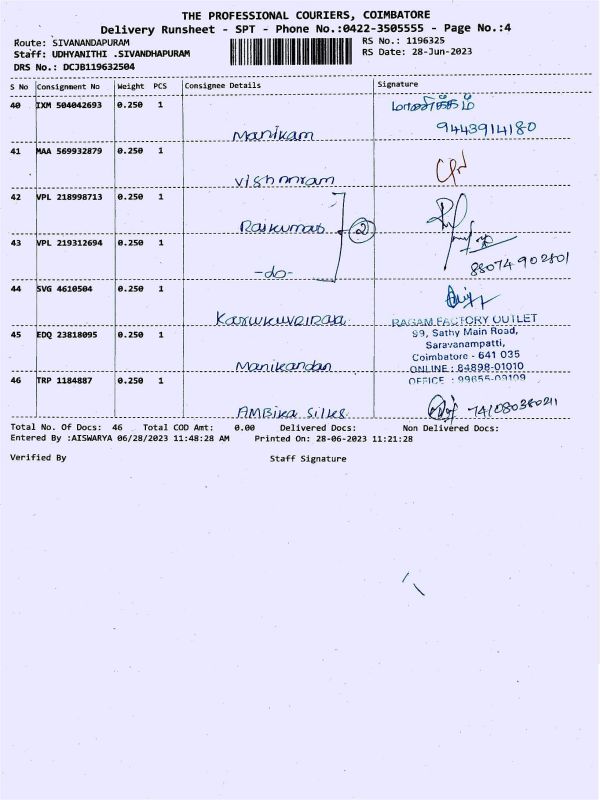 THE PROFESSIONAL COURIERS, COIMBATORE
Delivery Runsheet - SPT - Phone No.:0422-3505555 - Page No.:4
Route: SIVANANDAPURAM
RS No.: 1196325
Staff: UDHYANITHI .SIVANDHAPURAM
RS Date: 28-Jun-2023
DRS No.: DCJB119632504
S No Consignment No Weight PCS Consignee Details Signature
40 IXM 504042693 0.250 1
Manikam 9443914180
41 MAA 569932879 0.250 1
42 VPL 218998713 0.250 1
Rajkumar 2
43 VPL 219312694 0.250 1
-do- 88074902801
44 SVG 4610504 0.250 1
RAGAM FACTORY OUTLET
45 EDQ 23818095 0.250 1
99, Sathy Main Road,
Saravanampatti,
Coimbatore - 641 035
Manikandan
ONLINE : 84898-01010
46 TRP 1184887 0.250 1
OFFICE : 99655-09109
AMBika Silks
Total No. Of Docs: 46 Total COD Amt: 0.00 Delivered Docs: Non Delivered Docs:
Entered By :AISWARYA 06/28/2023 11:48:28 AM Printed On: 28-06-2023 11:21:28
Verified By Staff Signature